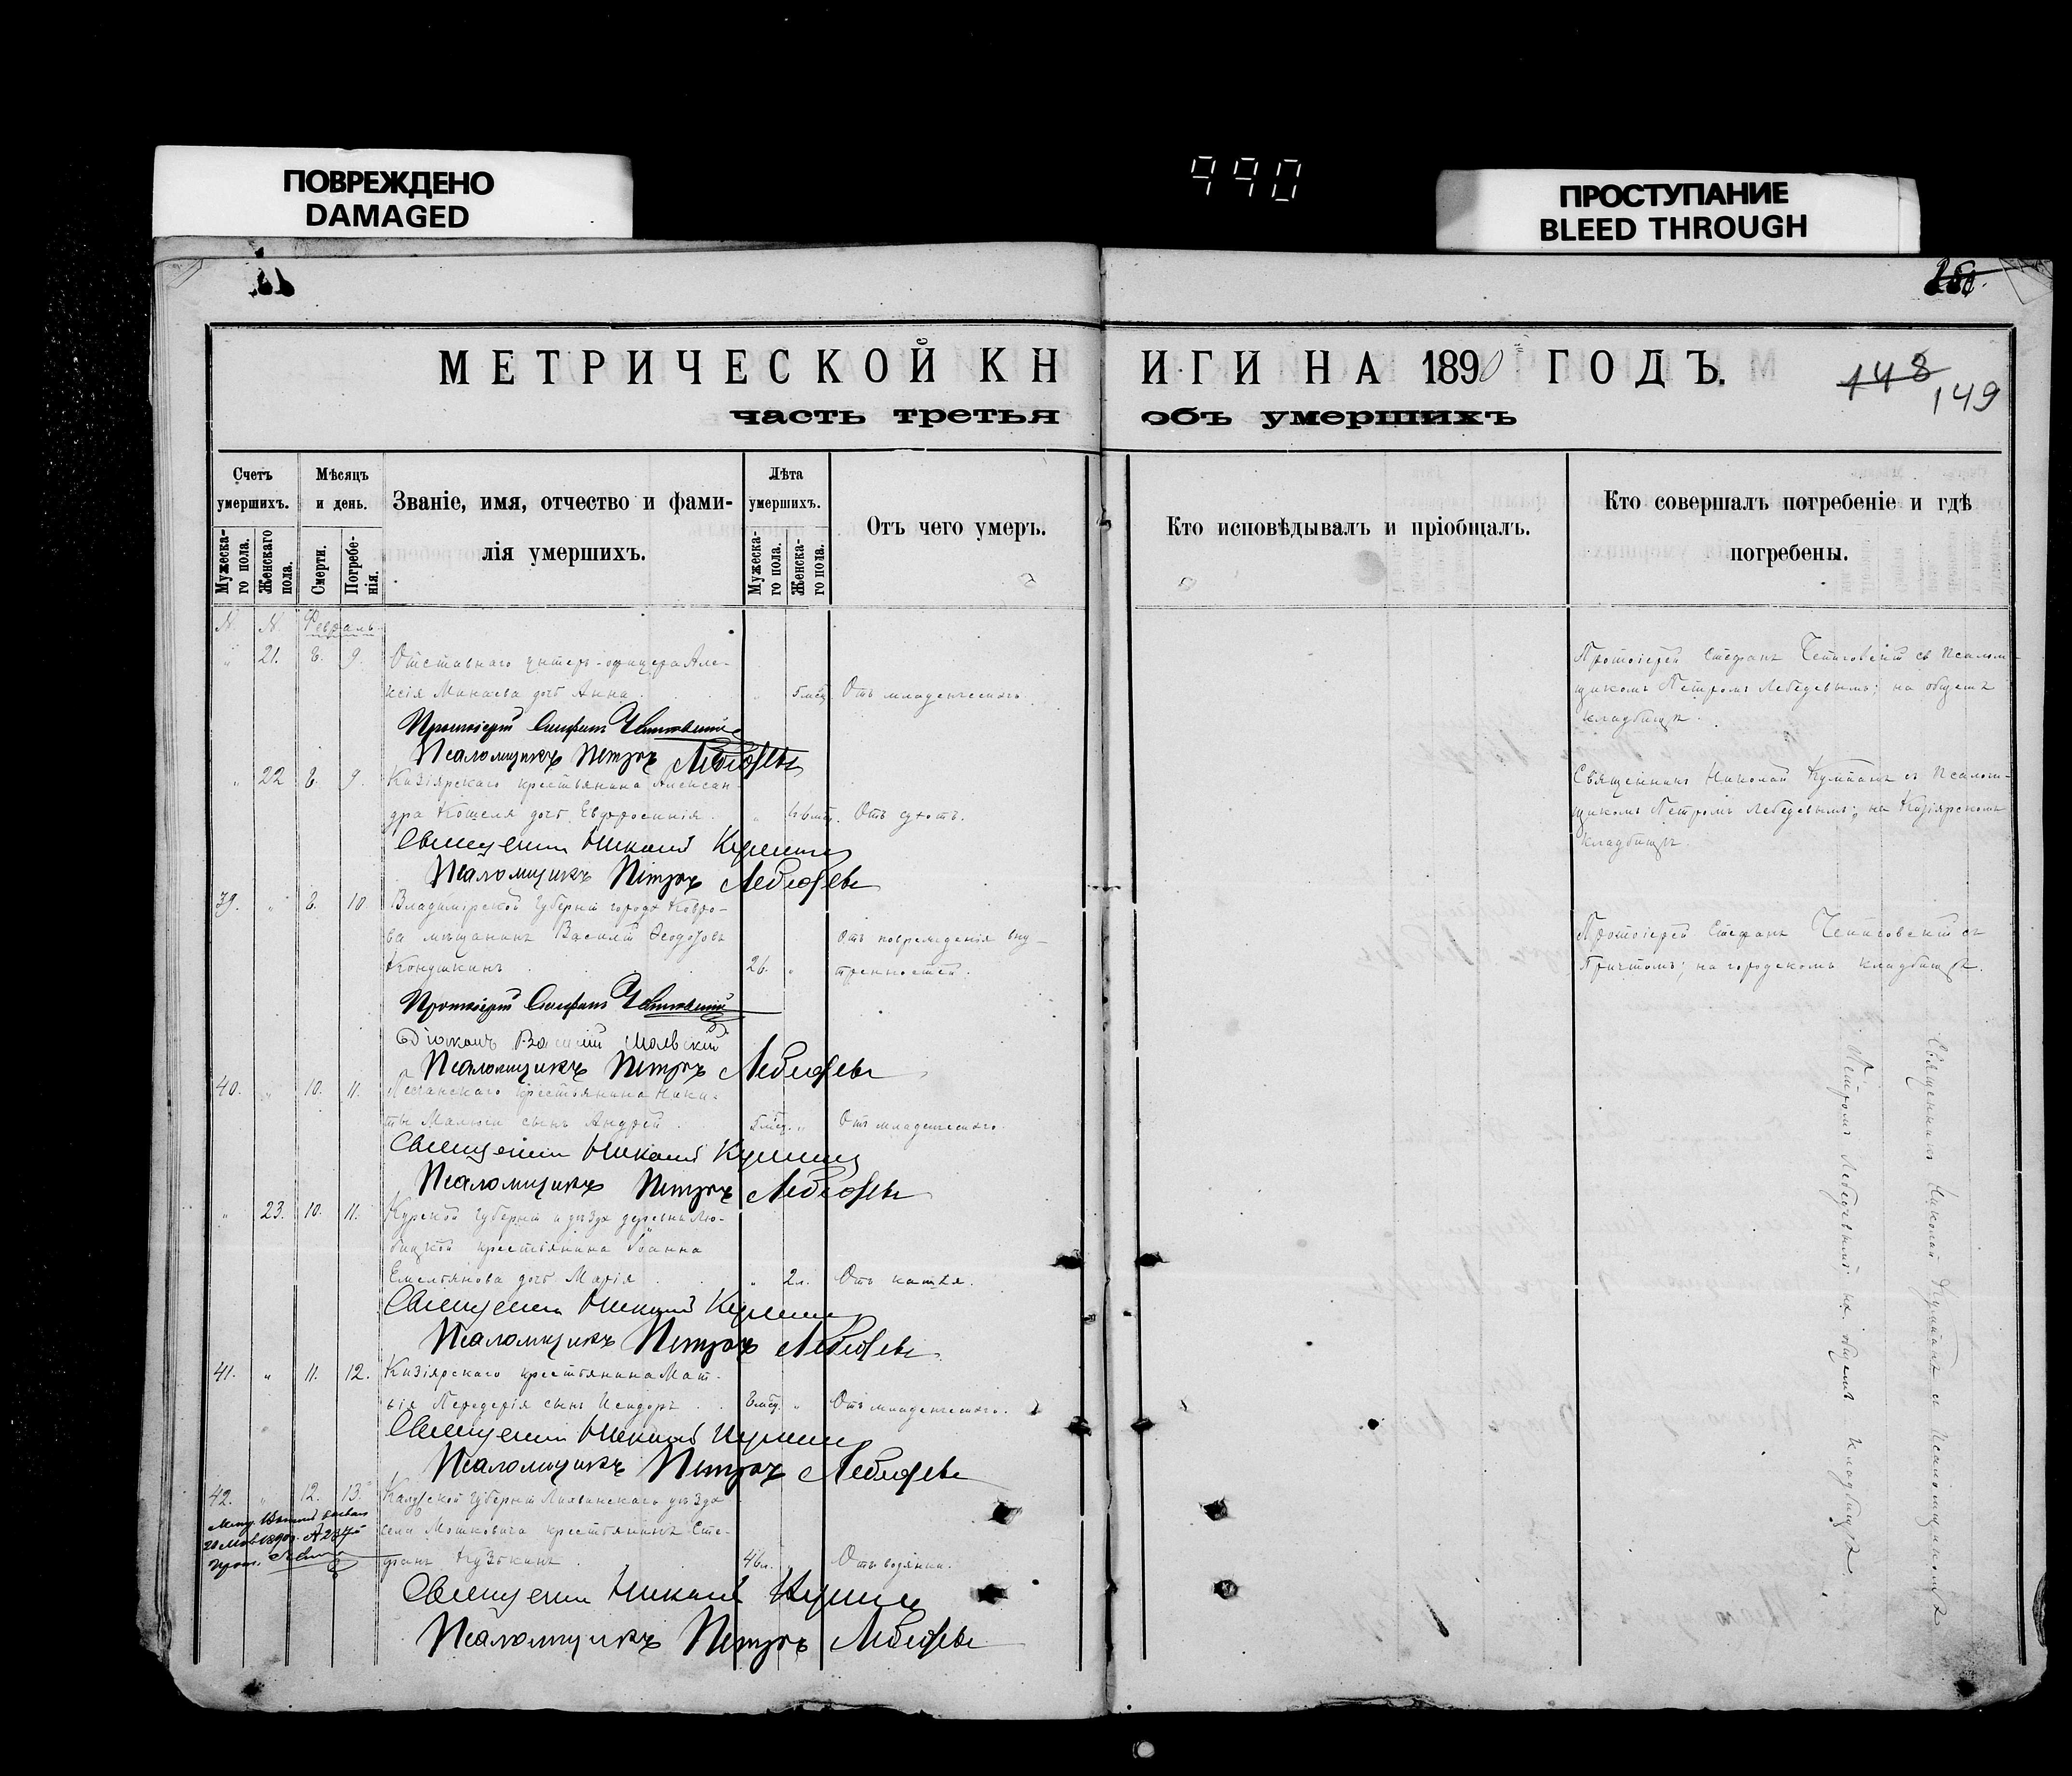 ПОВРЕЖДЕНО
DAMAGED
990
ПРОСТУПАНИЕ
BLEED THROUGH
МЕТРИЧЕСКОЙ КНИГИ НА 1890 ГОДЪ.
148
149
часть третья объ умершихъ
Счетъ умершихъ.
Мужескаго пола.
Женскаго пола.
Мѣсяцъ и день.
Смерти.
Погребенія.
Званіе, имя, отчество и фамилія умершихъ.
Лѣта умершихъ.
Мужескаго пола.
Женскаго пола.
Отъ чего умеръ.
Кто исповѣдывалъ и пріобщалъ.
Кто совершалъ погребеніе и гдѣ погребены.
N. N. Февраль
" 21. 8. 9. Отставнаго унтеръ-офицера Але-
ксія Минаева дочь Анна. " 5 мѣс. Отъ младенческаго.
Протоіерей Стефанъ с Псалом-
щикомъ Петромъ Лебедевымъ; на общемъ
кладбищѣ.
Протоіерей Стефанъ
Псаломщикъ Петръ Лебедевъ
" 22 8. 9. Кизіярскаго крестьянина Алексан-
дра Кошеля дочь Евфросинія. " Отъ сухотъ.
Священникъ Николай съ Псалом-
щикомъ Петромъ Лебедевымъ; на Кизіярскомъ
кладбищѣ.
Священникъ Николай
Псаломщикъ Петръ Лебедевъ
39. " 8. 10. Владимірской Губерніи города Ковро-
ва мѣщанинъ Василій Ѳеодоровъ Отъ поврежденія вну-
Кондикинъ 26. " тренностей.
Протоіерей Стефанъ съ
Причтомъ; на городскомъ кладбищѣ.
Протоіерей Стефанъ
Діаконъ Василій
Псаломщикъ Петръ Лебедевъ
40. " 10. 11. Песчанскаго крестьянина Ники-
ты сынъ Андрей. 5 мѣс. " Отъ младенческаго.
Священникъ Николай
Псаломщикъ Петръ Лебедевъ
" 23. 10. 11. Курской Губерніи и уѣзда деревни Лю-
бицкой крестьянина Іоанна
Емельянова дочь Марія " 2 л. Отъ кашля.
Священникъ Николай
Псаломщикъ Петръ Лебедевъ
41. " 11. 12. Кизіярскаго крестьянина Мат-
вія Передерія сынъ Исидоръ 8 мѣс. " Отъ младенческаго.
Священникъ Николай
Псаломщикъ Петръ Лебедевъ
42. " 12. 13. Калужской Губерніи Лихвинскаго уѣзда
села крестьянинъ Сте-
фанъ Кузькинъ. 46 л. " Отъ водянки.
Священникъ Николай
Псаломщикъ Петръ Лебедевъ
Священникъ Николай и Псаломщикомъ
Петромъ Лебедевымъ; на общемъ кладбищѣ.